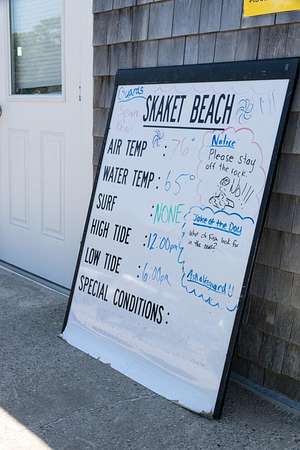 Guards
SKAKET BEACH
AIR TEMP : 76°
WATER TEMP : 65°
SURF : NONE
HIGH TIDE : 12:00pm
LOW TIDE : 6:00pm
SPECIAL CONDITIONS :
Notice
Please stay
off the rock
No!!!
Joke of the Day
What do look for
in the